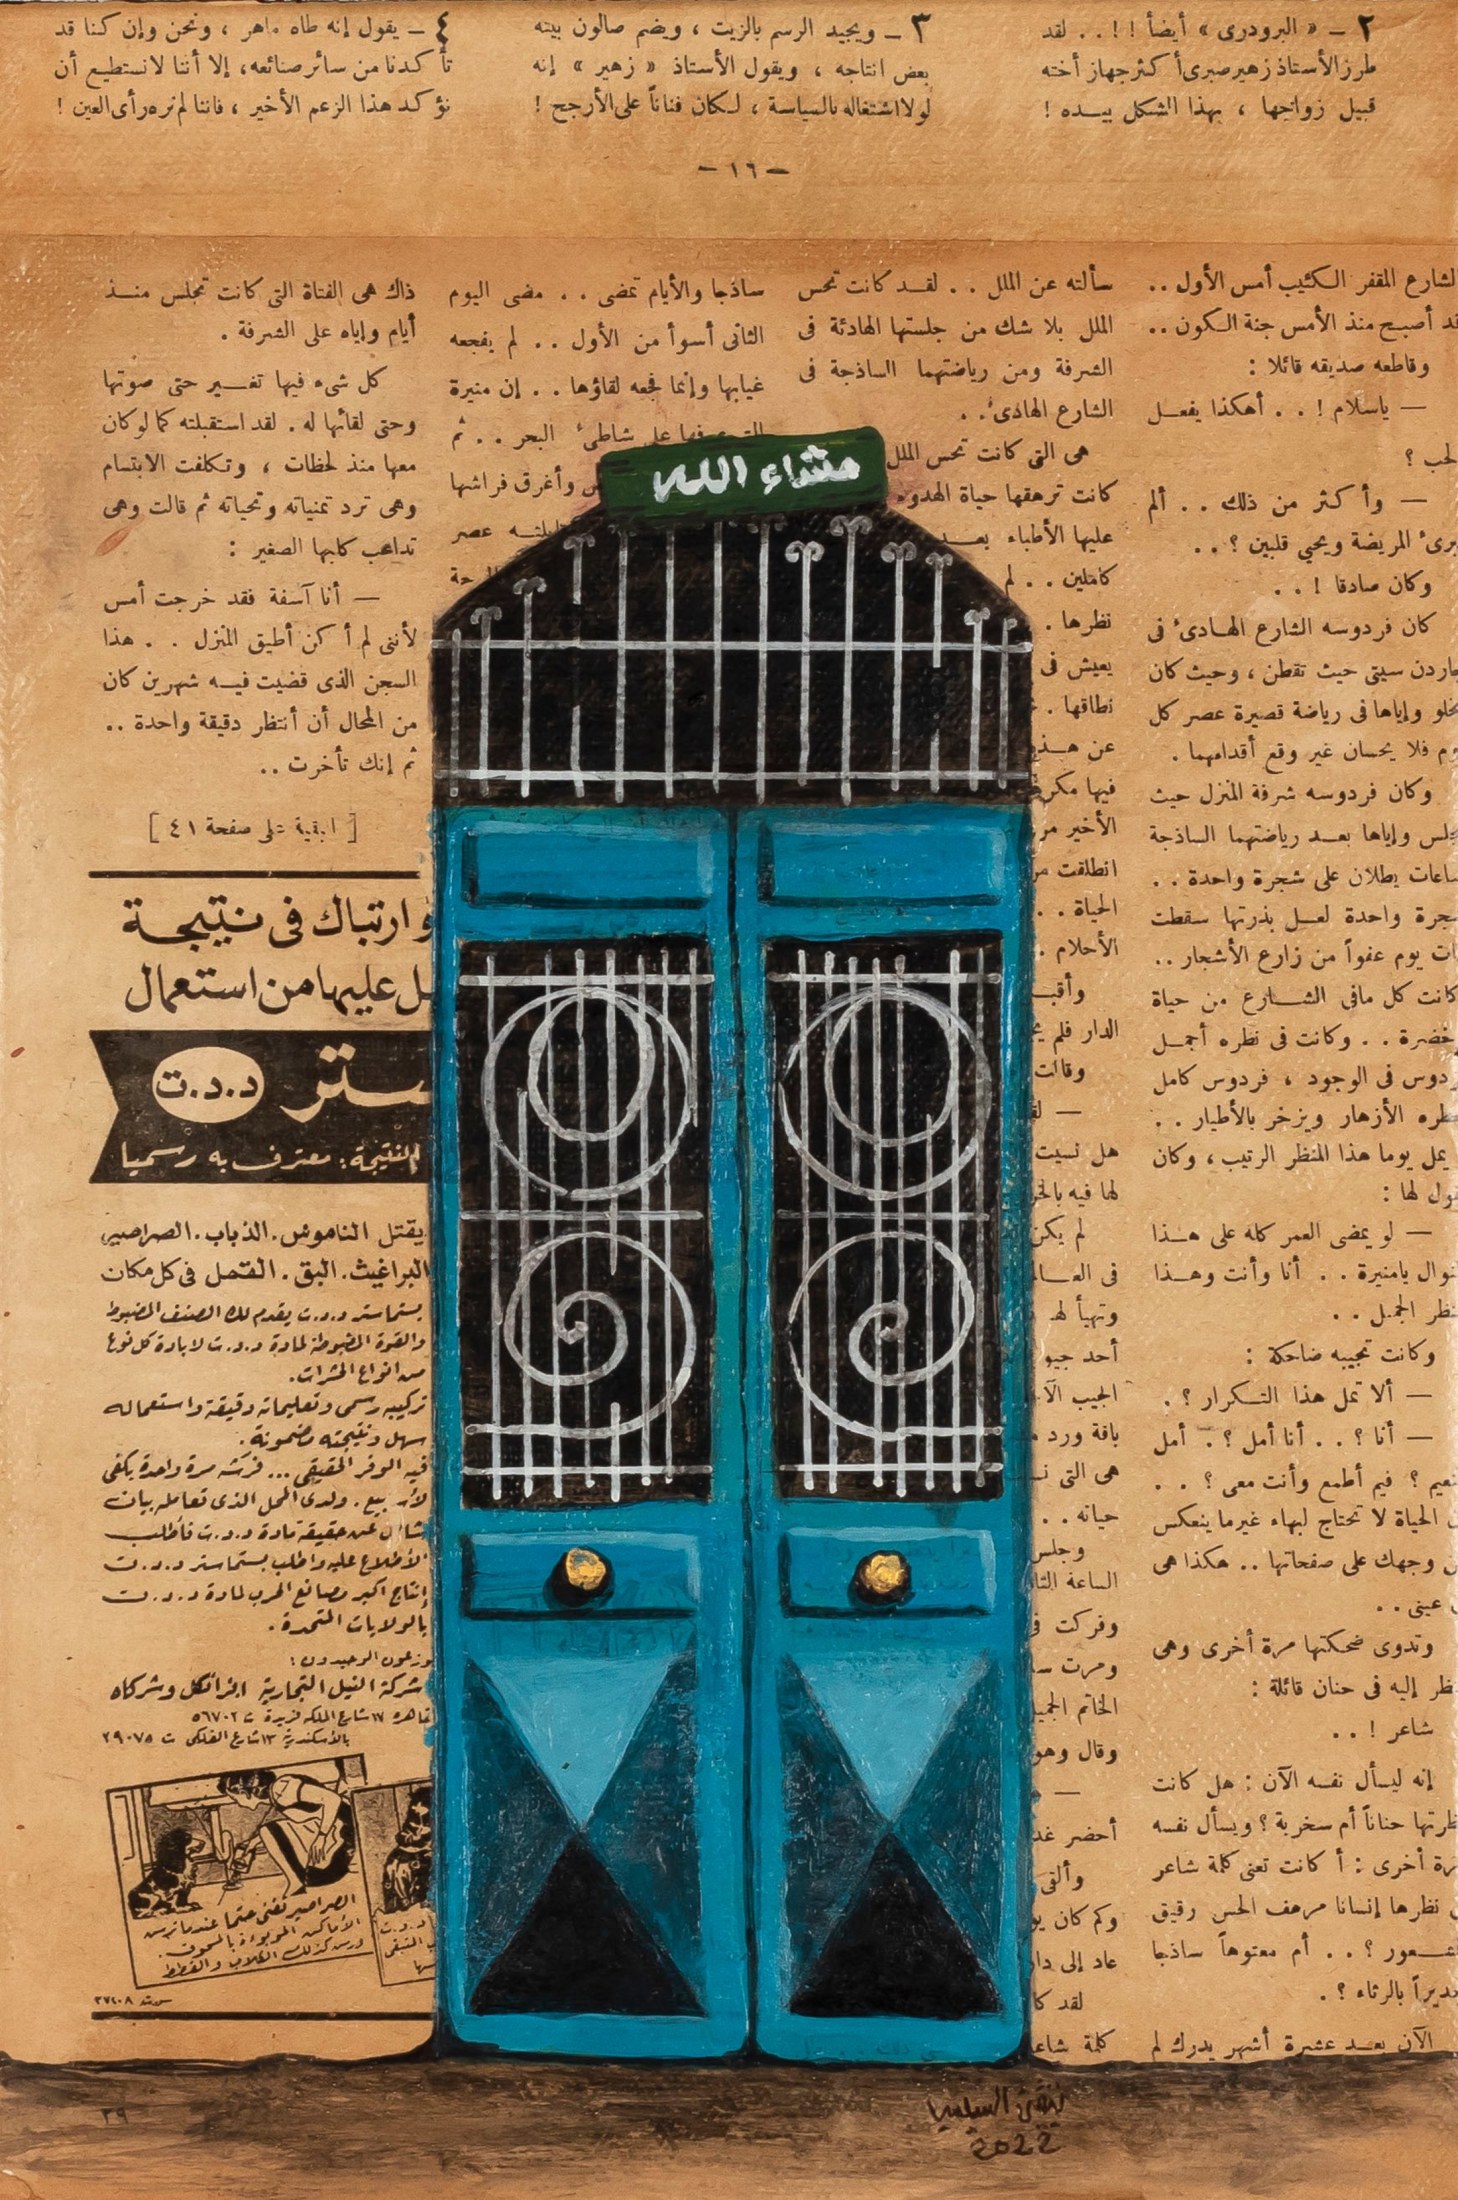 ٢ ـ « البرودرى » أيضاً ! ! . . لقد
طرز الأستاذ زهير صبرى أكثر جهاز أخته
قبيل زواجها ، بهذا الشكل بيده !
٣ ـ ويجيد الرسم بالزيت ، ويضم صالون بيته
بعض انتاجه ، ويقول الأستاذ « زهير » إنه
لولا اشتغاله بالسياسة ، لكان فناناً على الأرجح !
٤ ـ يقول إنه طاه ماهر ، ونحن وإن كنا قد
تأكدنا من سائر صنائعه، إلا أننا لا نستطيع أن
نؤكد هذا الزعم الأخير ، فاننا لم نره رأى العين !
ـ ١٦ ـ
الشارع المقفر الكئيب أمس الأول ..
قد أصبح منذ الأمس جنة الكون ..
وقاطعه صديقه قائلا :
— ياسلام ! . . أهكذا يفعل
لحب ؟
— وأكثر من ذلك . . ألم
يبرىء المريضة ويحيي قلبين ؟ . .
وكان صادقا ! . .
كان فردوسه الشارع الهادئ فى
جاردن سيتى حيث تقطن ، وحيث كان
يخلو وإياها فى رياضة قصيرة عصر كل
وم فلا يحسان غير وقع أقدامهما .
وكان فردوسه شرفة المنزل حيث
جلس وإياها بعد رياضتهما الساذجة
ساعات يطلان على شجرة واحدة . .
جرة واحدة لعل بذرتها سقطت
ات يوم عفواً من زارع الأشجار ..
كانت كل مافى الشارع من حياة
خضرة . . وكانت فى نظره أجمل
ردوس فى الوجود ، فردوس كامل
طره الأزهار ويزخر بالأطيار . .
يمل يوما هذا المنظر الرتيب ، وكان
قول لها :
— لو يمضى العمر كله على هذا
نوال يامنيرة . . أنا وأنت وهذا
نظر الجميل . .
وكانت تجيبه ضاحكة :
— ألا تمل هذا التكرار ؟ .
— أنا ؟ . . أنا أمل ؟ . أمل
نعيم ؟ فيم أطمع وأنت معى ؟ . .
الحياة لا تحتاج لبهاء غير ما ينعكس
وجهك على صفحاتها .. هكذا هى
عينى . .
وتدوى ضحكتها مرة أخرى وهى
نظر إليه فى حنان قائلة :
شاعر ! . .
إنه ليسأل نفسه الآن : هل كانت
نظرتها حناناً أم سخرية ؟ ويسأل نفسه
رة أخرى : أ كانت تعنى كلمة شاعر
نظرها إنسانا مرهف الحس رقيق
شعور ؟ . . أم معتوهاً ساذجا
ديراً بالرثاء ؟ .
الآن بعد عشرة أشهر يدرك لم
سألته عن الملل . . لقد كانت تحس
الملل بلا شك من جلستها الهادئة فى
الشرفة ومن رياضتهما الساذجة فى
الشارع الهادىء . .
هى التى كانت تحس الملل
كانت ترهقها حياة الهدوء
عليها الأطباء بعد
كاملين . . لم
نظرها .
يعيش فى
نطاقها .
عن هذ
فيها مكر
الأخير مر
انطلقت من
الحياة . .
الأحلام .
وأقب
الدار فلم
وقالت
— لق
هل نسيت
لها فيه بالخر
لم يكن
فى العا
وتهيأ له
أحد جيو
الجيب الآ
باقة ورد
هى التى
حياته . .
وجلس
الساعة الثا
وفركت
ومرت
الخاتم الجميل
وقال وهو
—
أحضر غد
وألقى
وكم كان
عاد إلى دا
لقد كا
كلمة شاعر
ساذجا والأيام تمضى . . مضى اليوم
الثانى أسوأ من الأول . . لم يفجعه
غيابها وإنما فجعه لقاؤها . . إن منيرة
التى عرفها على شاطىء البحر . . ثم
وأغرق فراشها
عصر
ذاك هى الفتاة التى كانت تجلس منذ
أيام وإياه على الشرفة .
كل شىء فيها تغير حتى صوتها
وحتى لقائها له . لقد استقبلته كما لو كان
معها منذ لحظات ، وتكلفت الابتسام
وهى ترد تمنياته وتحياته ثم قالت وهى
تداعب كلبها الصغير :
— أنا آسفة فقد خرجت أمس
لأننى لم أكن أطيق المنزل . . هذا
السجن الذى قضيت فيه شهرين كان
من المحال أن أنتظر دقيقة واحدة ..
ثم إنك تأخرت ..
[ البقية على صفحة ٤١ ]
مشاء الله
و ارتباك فى نتيجة
ل عليها من استعمال
ستر د.د.ت
النتيجة: معترف به رسميا
يقتل الناموس . الذباب . الصراصير
البراغيث . البق . القمل فى كل مكان
بستماستر د.د.ت يقدم لك الصنف المضبوط
والقوة المضبوطة لمادة د.د.ت لابادة كل نوع
من انواع الحشرات.
تركيبه رسمى وتعليماته دقيقة واستعماله
سهل ونتيجته مضمونة .
فيه الوفر الحقيقى ... فرشه مرة واحدة يكفى
بيع . ولدى المحل الذى تعامله بيان
عن حقيقة مادة د.د.ت فأطلب
الأطلاع عليه واطلب بستماستر د.د.ت
إنتاج اكبر مصانع الحرب لمادة د.د.ت
بالولايات المتحدة .
موزعون الوحيدون :
شركة النيل التجارية افرانكل وشركاه
القاهرة ١٧ شارع الملكه فريدة ت ٥٦٧٠٢
بالأسكندرية ١٣ شارع الفلكى ت ٢٩٠٧٥
الصراصير تفنى حتما عندما ترس
الأماكن الموبوءة بالمسحوق .
ورس كذلك الكلاب والقطط
د.د.ت
٣٩
2022